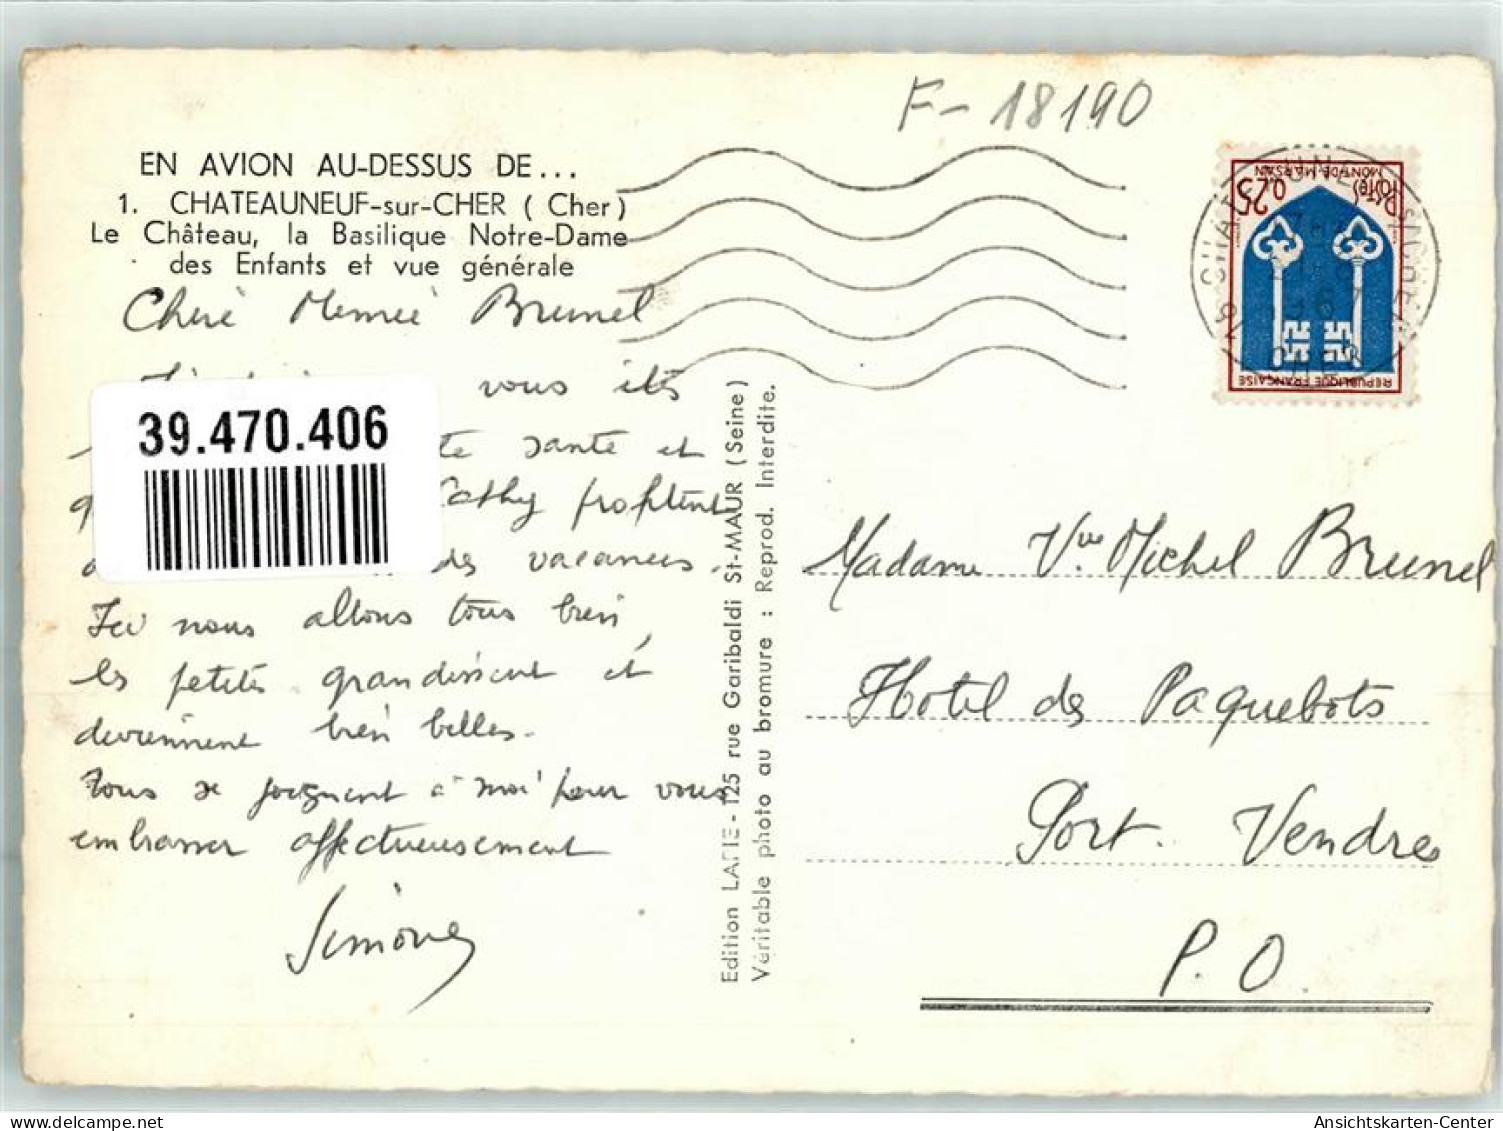 F-18190
EN AVION AU-DESSUS DE...
1. CHATEAUNEUF-sur-CHER ( Cher )
Le Château, la Basilique Notre-Dame
des Enfants et vue générale
Cheré Memeé Brunel
vous êtes
39.470.406
te santé et
Cathy profitent
des vacances.
Ici nous allons tous bien,
les petites grandissent et
deviennent bien belles.
Tous se joignent à moi pour vous
embrasser affectueusement
Simone
Edition LAPIE - 125 rue Garibaldi St-MAUR (Seine)
Véritable photo au bromure : Reprod. Interdite.
0,25
POSTES
MONT-DE-MARSAN
REPUBLIQUE FRANÇAISE
18 CHATEAUNEUF S CHER
CHER
Madame Vve Michel Brunel
Hotel des Paquebots
Port. Vendres
P. O.
oldthing.de
Ansichtskarten-Center